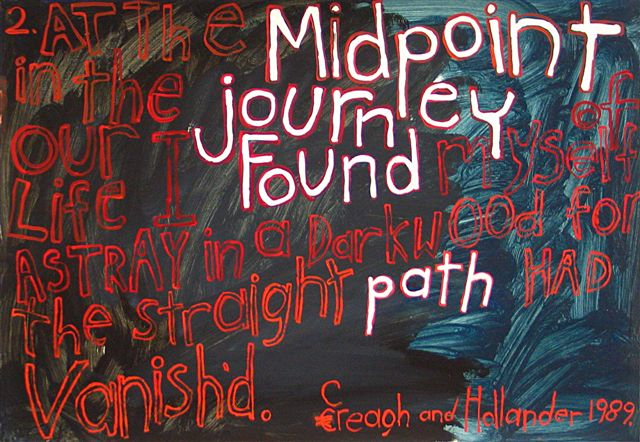 2. AT The Midpoint
in the journey of
our Life I Found myself
ASTRAY in a DarkWOOd for
the straight path HAD
Vanish'd.
Creagh and Hollander 1989.